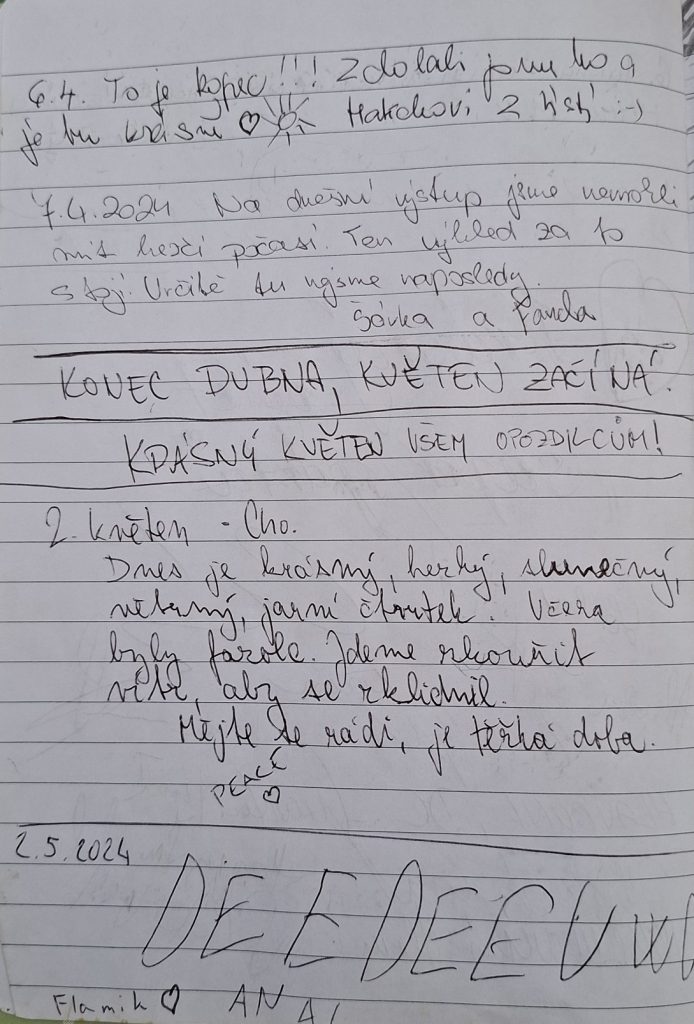 6.4. To je kopec!!! Zdolali jsme ho a
je tu krásně ♡ :-)
7.4.2024 Na dnešní výstup jsme nemohli
mít hezčí počasí. Ten výhled za to
stojí. Určitě tu nejsme naposledy.
a Fanda
KONEC DUBNA, KVĚTEN ZAČÍNÁ.
KRÁSNÝ KVĚTEN VŠEM OPOZDILCŮM!
2. květen - Cho.
Dnes je krásný, hezký, slunečný,
větrný, jarní čtvrtek. Včera
byly fazole. Jdeme zkouřit
vítr, aby se zklidnil.
Mějte se rádi, je těžká doba.
PEACE
♡
2.5.2024
DEEDEEUWU
Flamik ♡ ANAL